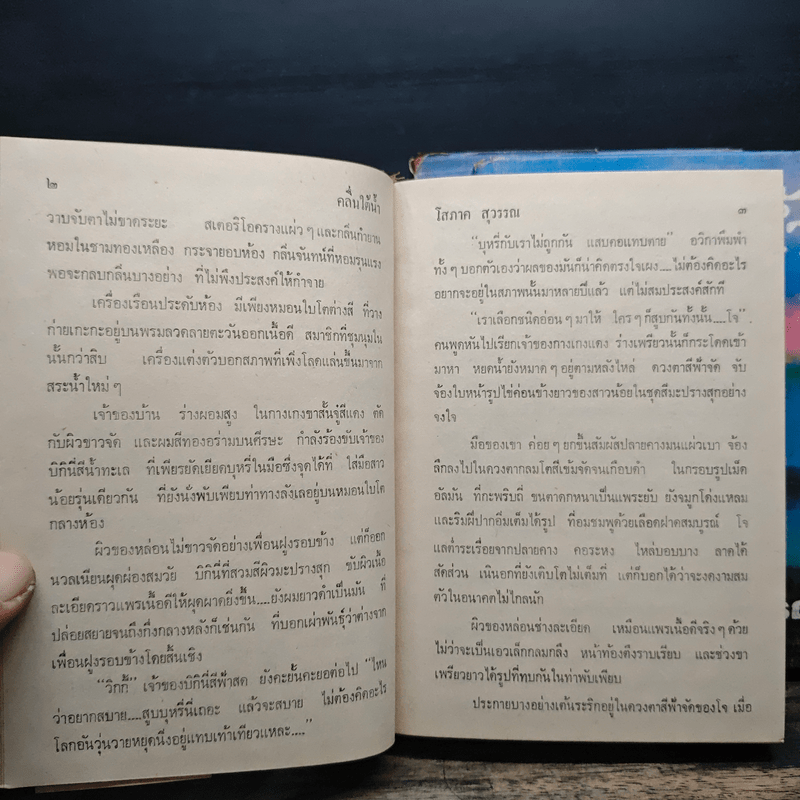 ๒
คลื่นใต้น้ำ
วาบจับตาไม่ขาดระยะ สเตอริโอครางแผ่ว ๆ และกลิ่นกำยาน
หอมในชามทองเหลือง กระจายอบห้อง กลิ่นจันทน์ที่หอมรุนแรง
พอจะกลบกลิ่นบางอย่าง ที่ไม่พึงประสงค์ให้กำจาย
เครื่องเรือนประดับห้อง มีเพียงหมอนใบโตต่างสี ที่วาง
ก่ายเกะกะอยู่บนพรมลวดลายตะวันออกเนื้อดี สมาชิกที่ชุมนุมใน
นั้นกว่าสิบ เครื่องแต่งตัวบอกสภาพที่เพิ่งโลดแล่นขึ้นมาจาก
สระน้ำใหม่ ๆ
เจ้าของบ้าน ร่างผอมสูง ในกางเกงขาสั้นจู๋สีแดง ตัด
กับผิวขาวจัด และผมสีทองอร่ามบนศีรษะ กำลังร้องขับเจ้าของ
บิกินี่สีน้ำทะเล ที่เพียรยัดเยียดบุหรี่ในมือซึ่งจุดได้ที่ ใส่มือสาว
น้อยรุ่นเดียวกัน ที่ยังนั่งพับเพียบท่าทางลังเลอยู่บนหมอนใบโต
กลางห้อง
ผิวของหล่อนไม่ขาวจัดอย่างเพื่อนฝูงรอบข้าง แต่ก็ออก
นวลเนียนผุดผ่องสมวัย บิกินี่ที่สวมสีผิวมะปรางสุก ขับผิวเนื้อ
ละเอียดราวแพรเนื้อดีให้ผุดผาดยิ่งขึ้น....ยังผมยาวดำเป็นมัน ที่
ปล่อยสยายจนถึงกึ่งกลางหลังก็เช่นกัน ที่บอกเผ่าพันธุ์ว่าต่างจาก
เพื่อนฝูงรอบข้างโดยสิ้นเชิง
“วิกกี้” เจ้าของบิกินี่สีฟ้าสด ยังคะยั้นคะยอต่อไป “ไหน
ว่าอยากสบาย....สูบบุหรี่นี่เถอะ แล้วจะสบาย ไม่ต้องคิดอะไร
โลกอันวุ่นวายหยุดนิ่งอยู่แทบเท้าเทียวแหละ....”
โสภาค สุวรรณ
๓
“บุหรี่กับเราไม่ถูกกัน แสบคอแทบตาย” อวิกาพึมพำ
ทั้ง ๆ บอกตัวเองว่าผลของมันก็น่าคิดตรงใจเผง....ไม่ต้องคิดอะไร
อยากจะอยู่ในสภาพนั้นมาหลายปีแล้ว แต่ไม่สมประสงค์สักที
“เราเลือกชนิดอ่อน ๆ มาให้ ใคร ๆ ก็สูบกันทั้งนั้น....โจ”
คนพูดหันไปเรียกเจ้าของกางเกงแดง ร่างเพรียวนั้นก็กระโดดเข้า
มาหา หยดน้ำยังหมาด ๆ อยู่ตามหลังไหล่ ดวงตาสีฟ้าจัด จับ
จ้องใบหน้ารูปไข่ค่อนข้างยาวของสาวน้อยในชุดสีมะปรางสุกอย่าง
จงใจ
มือของเขา ค่อย ๆ ยกขึ้นสัมผัสปลายคางมนแผ่วเบา จ้อง
ลึกลงไปในดวงตากลมโตสีเข้มจัดจนเกือบดำ ในกรอบรูปเม็ด
อัลมัน ที่กะพริบถี่ ขนตาดกหนาเป็นแพระยับ ยังจมูกโด่งแหลม
และริมฝีปากอิ่มเต็มได้รูป ที่อมชมพูด้วยเลือดฝาดสมบูรณ์ โจ
แลต่ำระเรื่อยจากปลายคาง คอระหง ไหล่บอบบาง ลาดได้
สัดส่วน เนินอกที่ยังเติบโตไม่เต็มที่ แต่ก็บอกได้ว่าจะงดงามสม
ตัวในอนาคตไม่ไกลนัก
ผิวของหล่อนช่างละเอียด เหมือนแพรเนื้อดีจริง ๆ ด้วย
ไม่ว่าจะเป็นเอวเล็กกลมกลึง หน้าท้องตึงราบเรียบ และช่วงขา
เพรียวยาวได้รูปที่ทบกันในท่าพับเพียบ
ประกายบางอย่างเต้นระริกอยู่ในดวงตาสีฟ้าจัดของโจ เมื่อ